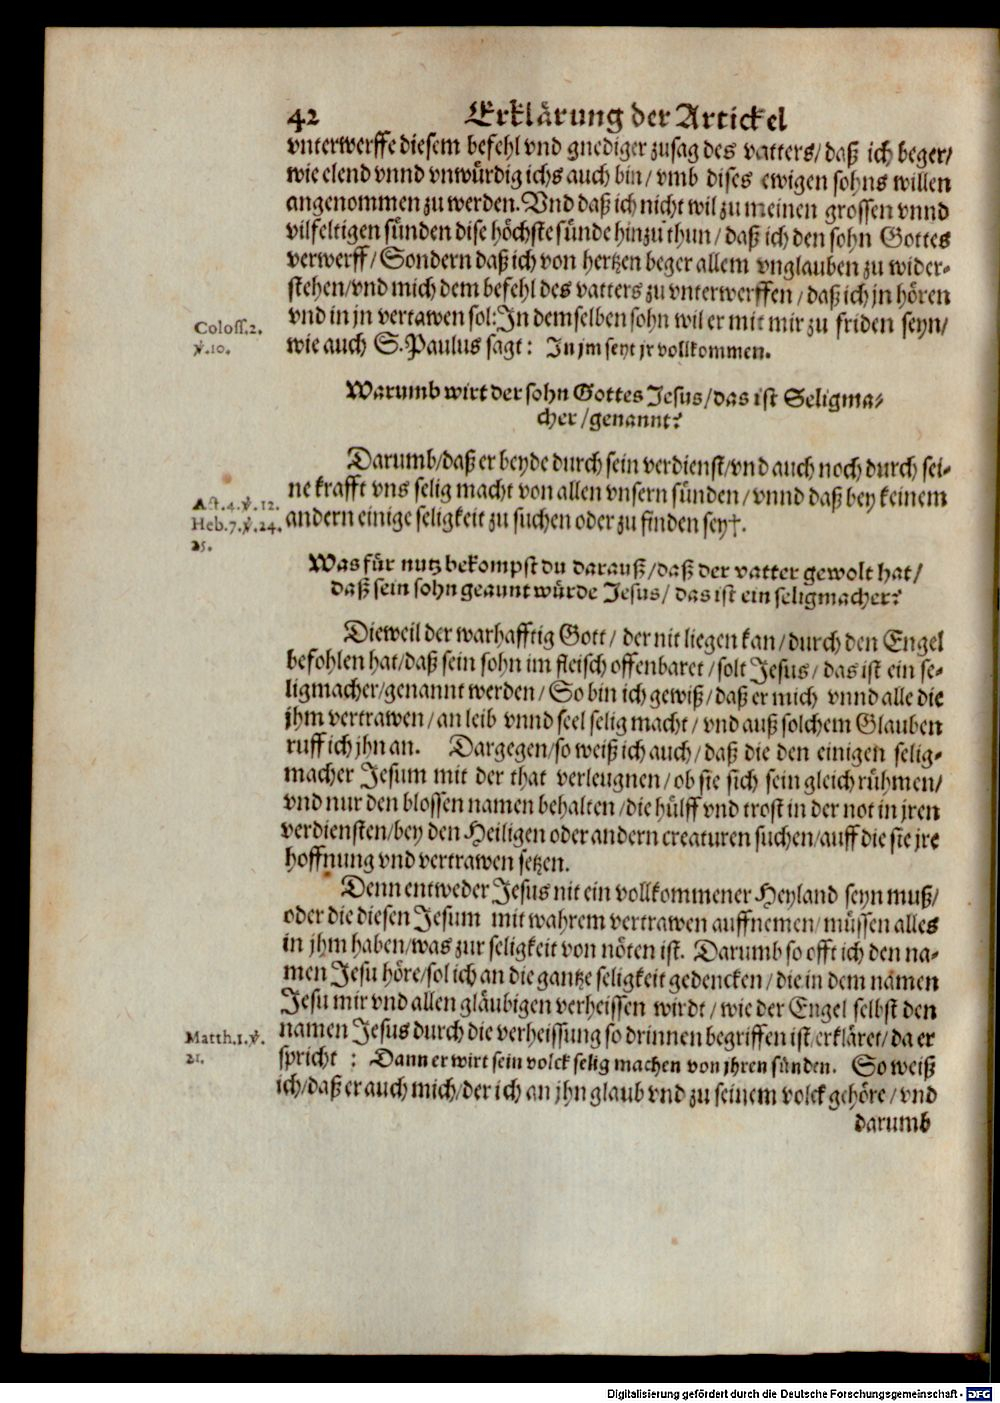 42 Erklärung der Artickel
vnterwerffe diesem befehl vnd gnediger zusag des vatters/ daß ich beger/
wie elend vnnd vnwürdig ichs auch bin/ vmb dises ewigen sohns willen
angenommen zu werden. Vnd daß ich nicht wil zu meinen grossen vnnd
vilfeltigen sünden dise höchste sünde hinzu thun/ daß ich den sohn Gottes
verwerff/ Sondern daß ich von hertzen beger allem vnglauben zu wider-
stehen/ vnd mich dem befehl des vatters zu vnterwerffen/ daß ich jn hören
Coloss.2. vnd in jn vertawen sol: In demselben sohn wil er mit mir zu friden seyn/
℣.10. wie auch S. Paulus sagt: In jm seyt jr vollkommen.
Warumb wirt der sohn Gottes Jesus/ das ist Seligma-
cher/ genannt?
Darumb/ daß er beyde durch sein verdienst/ vnd auch noch durch sei-
Act.4.℣.12. ne krafft vns selig macht von allen vnsern sünden/ vnnd daß bey keinem
Heb.7.℣.24. andern einige seligkeit zu suchen oder zu finden sey†.
25.
Was für nutz bekompst du darauß/ daß der vatter gewolt hat/
daß sein sohn geannt würde Jesus/ das ist ein seligmacher?
Dieweil der warhafftig Gott/ der nit liegen kan/ durch den Engel
befohlen hat/ daß sein sohn im fleisch offenbaret/ solt Jesus/ das ist ein se-
ligmacher/ genannt werden/ So bin ich gewiß/ daß er mich vnnd alle die
jhm vertrawen/ an leib vnnd seel selig macht/ vnd auß solchem Glauben
ruff ich jhn an. Dargegen/ so weiß ich auch/ daß die den einigen selig-
macher Jesum mit der that verleugnen/ ob sie sich sein gleich rühmen/
vnd nur den blossen namen behalten/ die hülff vnd trost in der not in jren
verdiensten/ bey den Heiligen oder andern creaturen suchen/ auff die sie jre
hoffnung vnd vertrawen setzen.
Denn entweder Jesus nit ein vollkommener Heyland seyn muß/
oder die diesen Jesum mit wahrem vertrawen auffnemen/ müssen alles
in jhm haben/ was zur seligkeit von nöten ist. Darumb so offt ich den na-
men Jesu höre/ sol ich an die gantze seligkeit gedencken/ die in dem namen
Jesu mir vnd allen gläubigen verheissen wirdt/ wie der Engel selbst den
Matth.1.℣. namen Jesus durch die verheissung so drinnen begriffen ist/ erkläret/ da er
21. spricht: Dann er wirt sein volck selig machen von jhren sünden. So weiß
ich/ daß er auch mich/ der ich an jhn glaub vnd zu seinem volck gehöre/ vnd
darumb
Digitalisierung gefördert durch die Deutsche Forschungsgemeinschaft - DFG